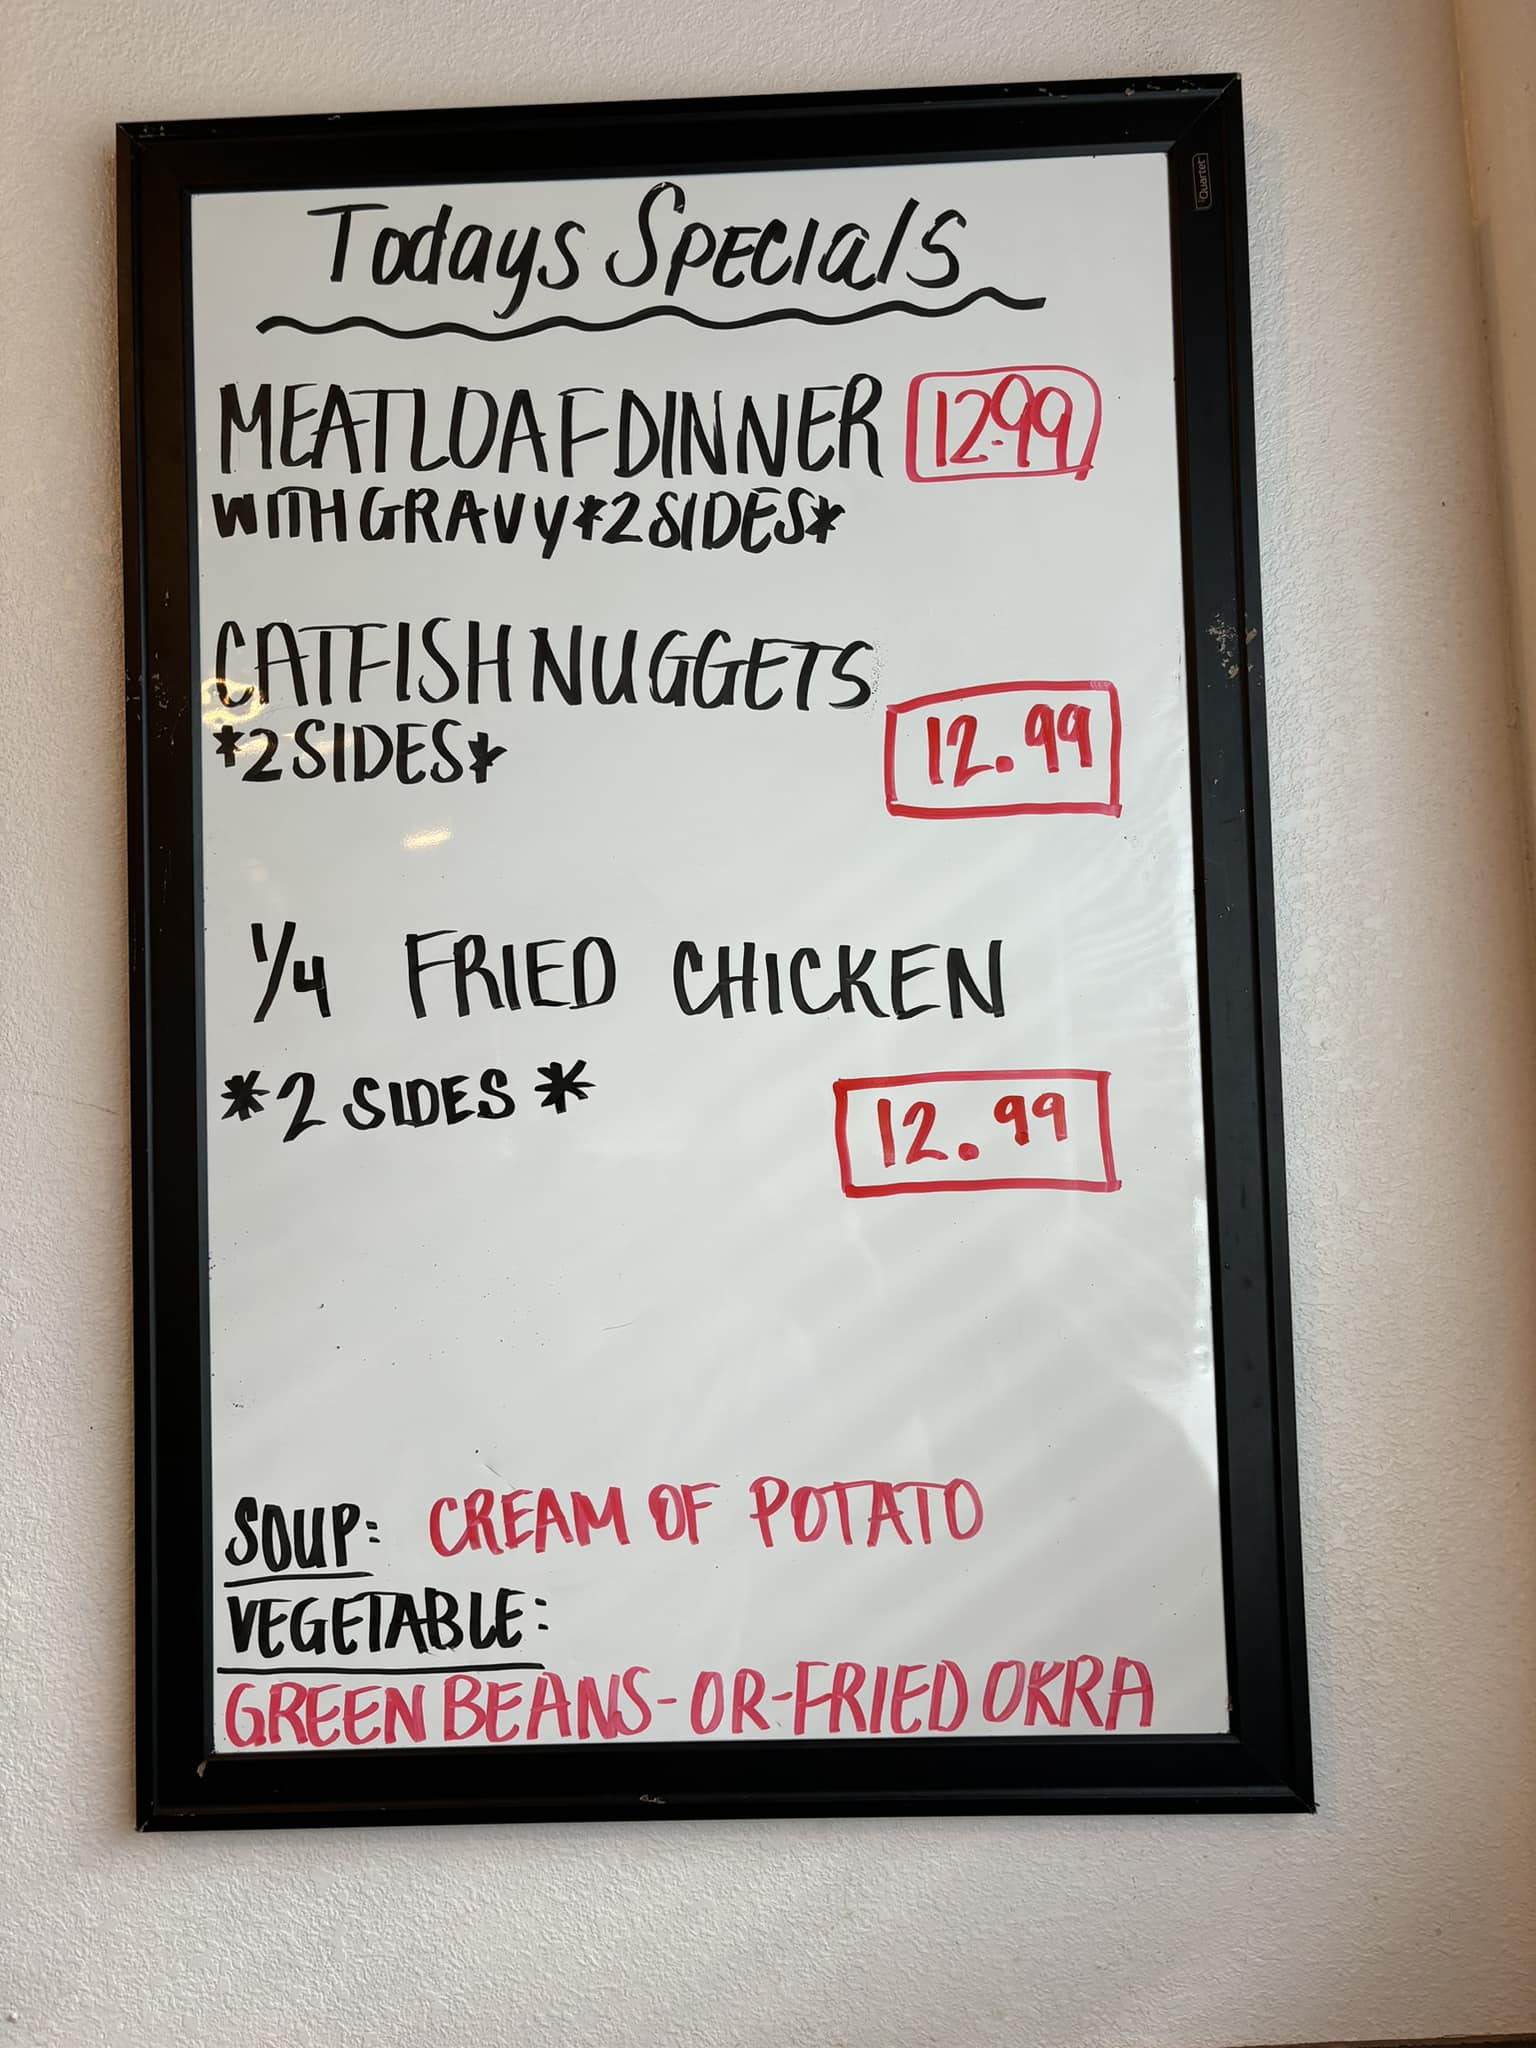 Todays Specials
MEATLOAF DINNER 12.99
WITH GRAVY *2 SIDES*
CATFISH NUGGETS
*2 SIDES* 12.99
1/4 FRIED CHICKEN
*2 SIDES* 12.99
SOUP: CREAM OF POTATO
VEGETABLE:
GREEN BEANS-OR-FRIED OKRA
Quartet